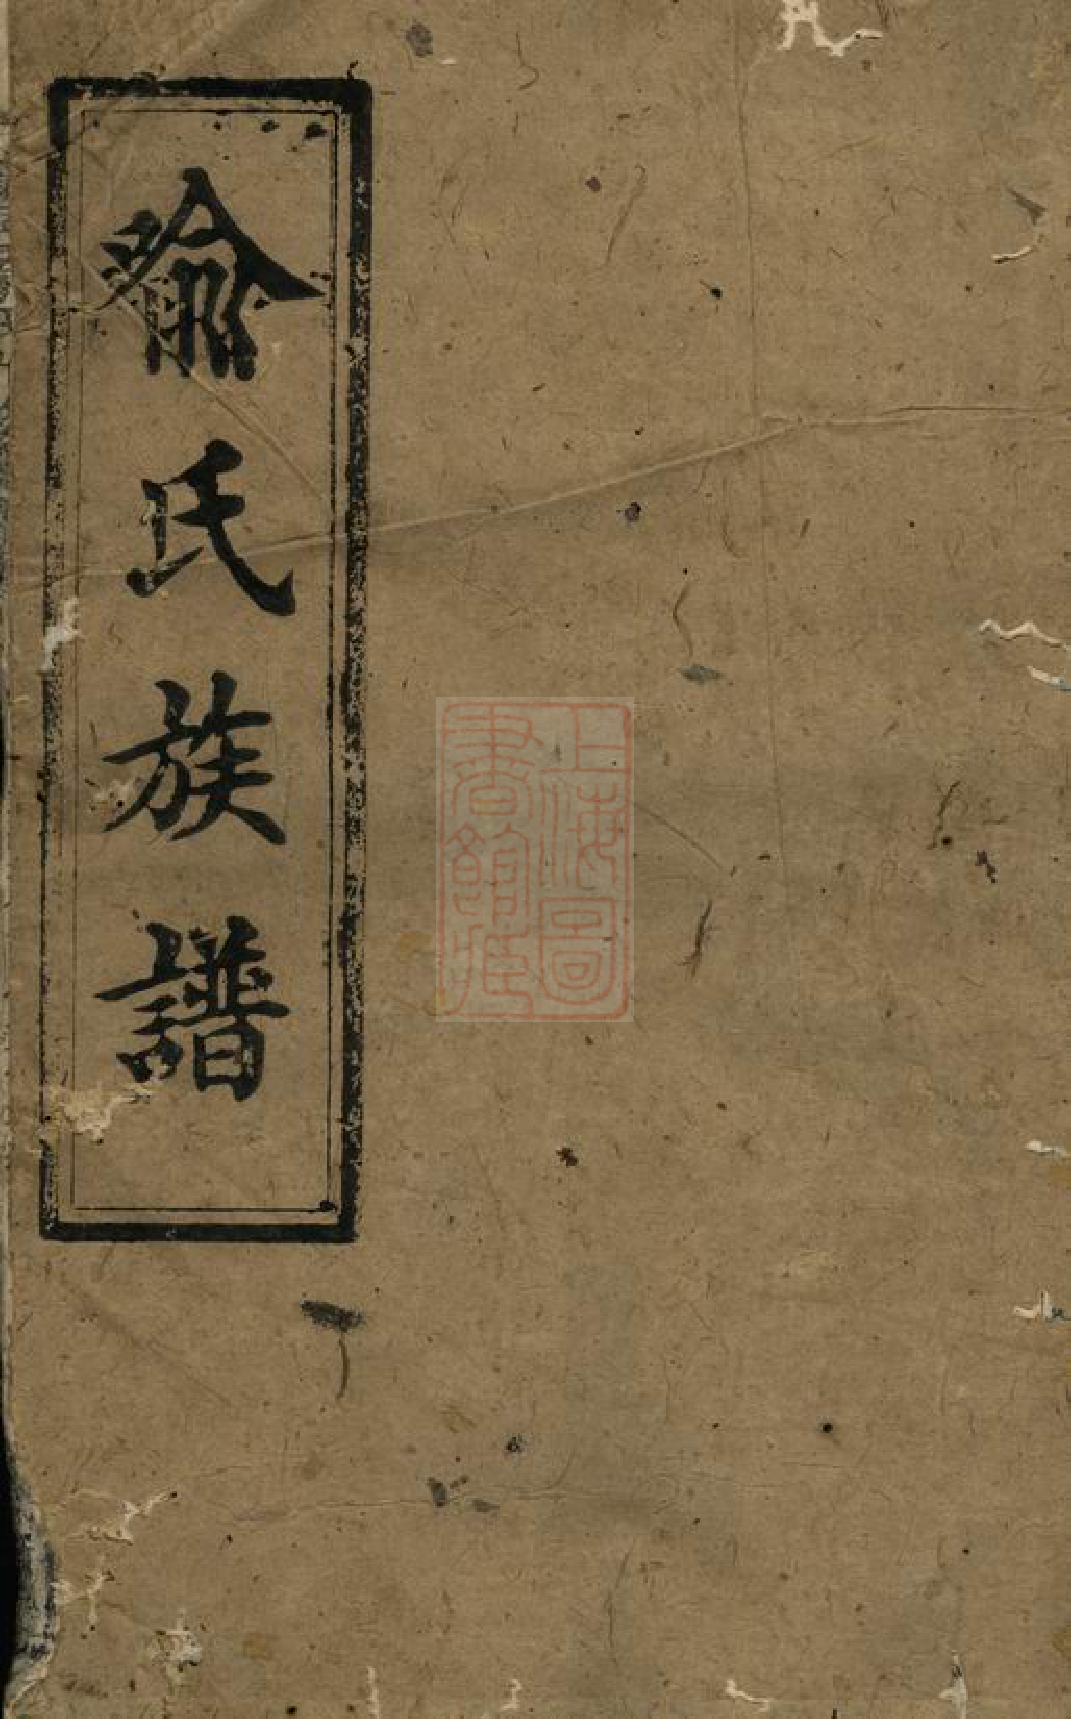 喻氏族譜
上海圖
書館藏